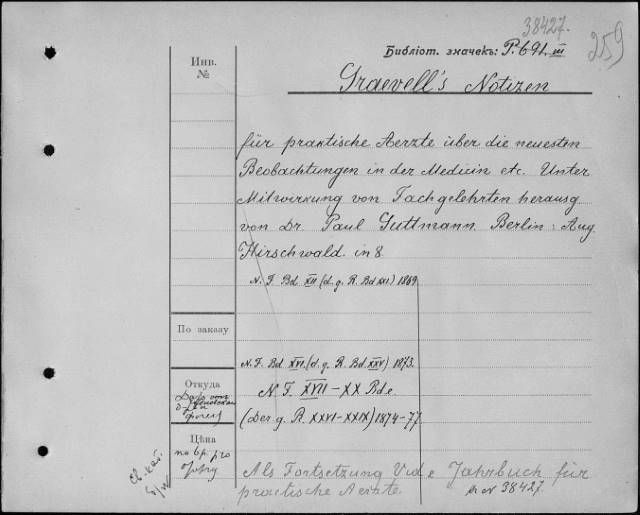 38427.
259
Библіот. значекъ: P. 691. III
Graevell's Notizen
Инв.
№
für praktische Aerzte über die neuesten
Beobachtungen in der Medicin etc. Unter
Mitwirkung von Fachgelehrten herausg
von Dr. Paul Guttmann. Berlin: Aug.
Hirschwald. in 8.
N. F. Bd XII (d. g. R. Bd XXI.) 1869
По заказу
N. F. Bd. XVI. (d. g. R. Bd. XXV) 1873.
Откуда
N. F. XVII–XX Bde.
(Der g. R. XXVI–XXIX) 1874–77.
Цѣна
Св. кат.
Als Fortsetzung Vide Jahrbuch für
practische Aerzte.
38427.